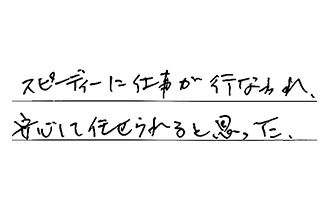 スピーディーに仕事が行なわれ、
安心して任せられると思った.